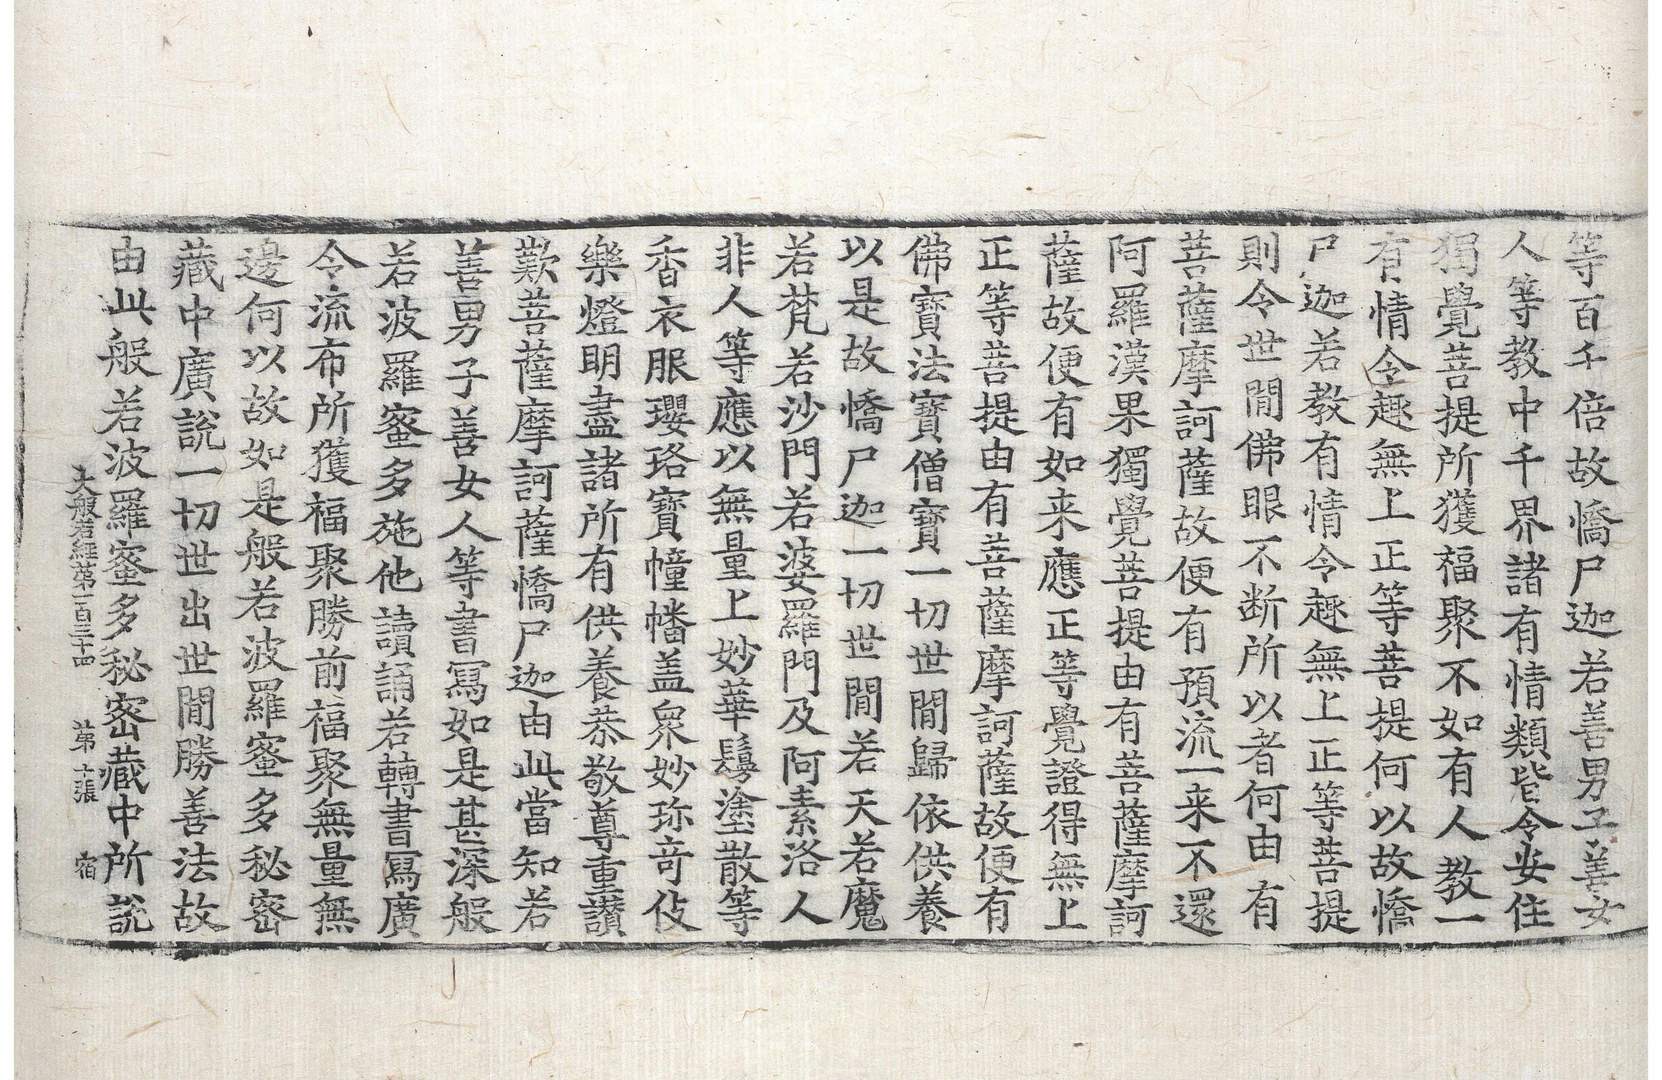 等百千倍故憍尸迦若善男子善女
人等教中千界諸有情類皆令安住
獨覺菩提所獲福聚不如有人教一
有情令趣無上正等菩提何以故憍
尸迦若教有情令趣無上正等菩提
則令世閒佛眼不断所以者何由有
菩薩摩訶薩故便有預流一来不還
阿羅漢果獨覺菩提由有菩薩摩訶
薩故便有如来應正等覺證得無上
正等菩提由有菩薩摩訶薩故便有
佛寶法寶僧寶一切世閒歸依供養
以是故憍尸迦一切世閒若天若魔
若梵若沙門若婆羅門及阿素洛人
非人等應以無量上妙華鬘塗散等
香衣服瓔珞寶幢幡盖衆妙珎奇伎
樂燈明盡諸所有供養恭敬尊重讃
歎菩薩摩訶薩憍尸迦由此當知若
善男子善女人等書寫如是甚深般
若波羅蜜多施他讀誦若轉書寫廣
令流布所獲福聚勝前福聚無量無
邊何以故如是般若波羅蜜多秘密
藏中廣說一切世出世閒勝善法故
由此般若波羅蜜多秘密藏中所說
大般若經第一百三十四 第十張 宿